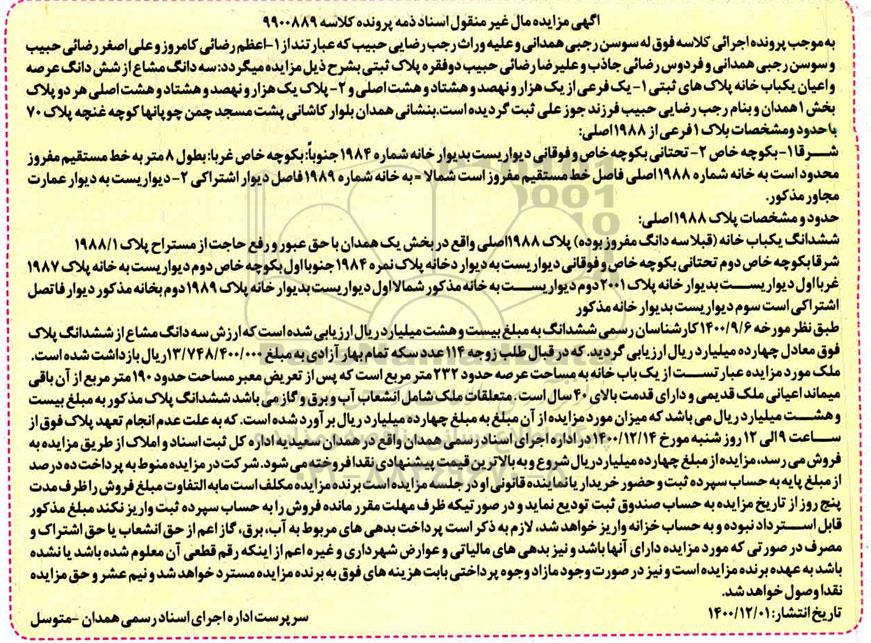 آگهی مزایده مال غیر منقول اسناد ذمه پرونده کلاسه ۹۹۰۰۸۸۹
به موجب پرونده اجرائی کلاسه فوق له سوسن رجبی همدانی و علیه وراث رجب رضایی حبیب که عبارتند از ۱-اعظم رضائی کامروز و علی اصغر رضائی حبیب
و سوسن رجبی همدانی و فردوس رضائی جاذب و علیرضا رضائی حبیب دو فقره پلاک ثبتی بشرح ذیل مزایده میگردد: سه دانگ مشاع از شش دانگ عرصه
و اعیان یکباب خانه پلاک های ثبتی ۱- یک فرعی از یک هزار و نهصد و هشتاد و هشت اصلی و ۲- پلاک یک هزار و نهصد و هشتاد و هشت اصلی هر دو پلاک
بخش ۱ همدان و بنام رجب رضایی حبیب فرزند جوز علی ثبت گردیده است. بنشانی همدان بلوار کاشانی پشت مسجد چمن چوپانها کوچه غنچه پلاک ۷۰
با حدود و مشخصات پلاک ۱ فرعی از ۱۹۸۸ اصلی:
شــرقا ۱- بکوچه خاص ۲- تحتانی بکوچه خاص و فوقانی دیواریست بدیوار خانه شماره ۱۹۸۴ جنوباً: بکوچه خاص غربا: بطول ۸ متر به خط مستقیم مفروز
محدود است به خانه شماره ۱۹۸۸ اصلی فاصل خط مستقیم مفروز است شمالا = به خانه شماره ۱۹۸۹ فاصل دیوار اشتراکی ۲- دیواریست به دیوار عمارت
مجاور مذکور.
حدود و مشخصات پلاک ۱۹۸۸ اصلی:
ششدانگ یکباب خانه (قبلا سه دانگ مفروز بوده) پلاک ۱۹۸۸ اصلی واقع در بخش یک همدان با حق عبور و رفع حاجت از مستراح پلاک ۱۹۸۸/۱
شرقا بکوچه خاص دوم تحتانی بکوچه خاص و فوقانی دیواریست به دیوار د خانه پلاک نمره ۱۹۸۴ جنوبا اول بکوچه خاص دوم دیواریست به خانه پلاک ۱۹۸۷
غربا اول دیواریســت بدیوار خانه پلاک ۲۰۰۱ دوم دیواریســت به خانه مذکور شمالا اول دیواریست بدیوار خانه پلاک ۱۹۸۹ دوم بخانه مذکور دیوار فاتصل
اشتراکی است سوم دیواریست بدیوار خانه مذکور
طبق نظر مورخه ۱۴۰۰/۹/۶ کارشناسان رسمی ششدانگ به مبلغ بیست و هشت میلیارد ریال ارزیابی شده است که ارزش سه دانگ مشاع از ششدانگ پلاک
فوق معادل چهارده میلیارد ریال ارزیابی گردید. که در قبال طلب زوجه ۱۱۴ عدد سکه تمام بهار آزادی به مبلغ ۱۳/۷۴۸/۴۰۰/۰۰۰ ریال بازداشت شده است.
ملک مورد مزایده عبار تســت از یک باب خانه به مساحت عرصه حدود ۲۳۲ متر مربع است که پس از تعریض معبر مساحت حدود ۱۹۰ متر مربع از آن باقی
میماند اعیانی ملک قدیمی و دارای قدمت بالای ۴۰ سال است. متعلقات ملک شامل انشعاب آب و برق و گاز می باشد ششدانگ پلاک مذکور به مبلغ بیست
و هشــت میلیارد ریال می باشد که میزان مورد مزایده از آن مبلغ به مبلغ چهارده میلیارد ریال بر آورد شده است. که به علت عدم انجام تعهد پلاک فوق از
ســاعت ۹ الی ۱۲ روز شنبه مورخ ۱۴۰۰/۱۲/۱۴ در اداره اجرای اسناد رسمی همدان واقع در همدان سعیدیه اداره کل ثبت اسناد و املاک از طریق مزایده به
فروش می رسد، مزایده از مبلغ چهارده میلیارد ریال شروع و به بالاترین قیمت پیشنهادی نقدا فروخته می شود. شرکت در مزایده منوط به پرداخت ده درصد
از مبلغ پایه به حساب سپرده ثبت و حضور خریدار یا نماینده قانونی او در جلسه مزایده است برنده مزایده مکلف است مابه التفاوت مبلغ فروش را ظرف مدت
پنج روز از تاریخ مزایده به حساب صندوق ثبت تودیع نماید و در صور تیکه ظرف مهلت مقرر مانده فروش را به حساب سپرده ثبت واریز نکند مبلغ مذکور
قابل اســترداد نبوده و به حساب خزانه واریز خواهد شد، لازم به ذکر است پرداخت بدهی های مربوط به آب، برق، گاز اعم از حق انشعاب یا حق اشتراک و
مصرف در صورتی که مورد مزایده دارای آنها باشد و نیز بدهی های مالیاتی و عوارض شهرداری و غیره اعم از اینکه رقم قطعی آن معلوم شده باشد یا نشده
باشد به عهده برنده مزایده است و نیز در صورت وجود مازاد وجوه پرداختی بابت هزینه های فوق به برنده مزایده مسترد خواهد شد و نیم عشر و حق مزایده
نقدا وصول خواهد شد.
تاریخ انتشار: ۱۴۰۰/۱۲/۰۱ سرپرست اداره اجرای اسناد رسمی همدان -متوسل